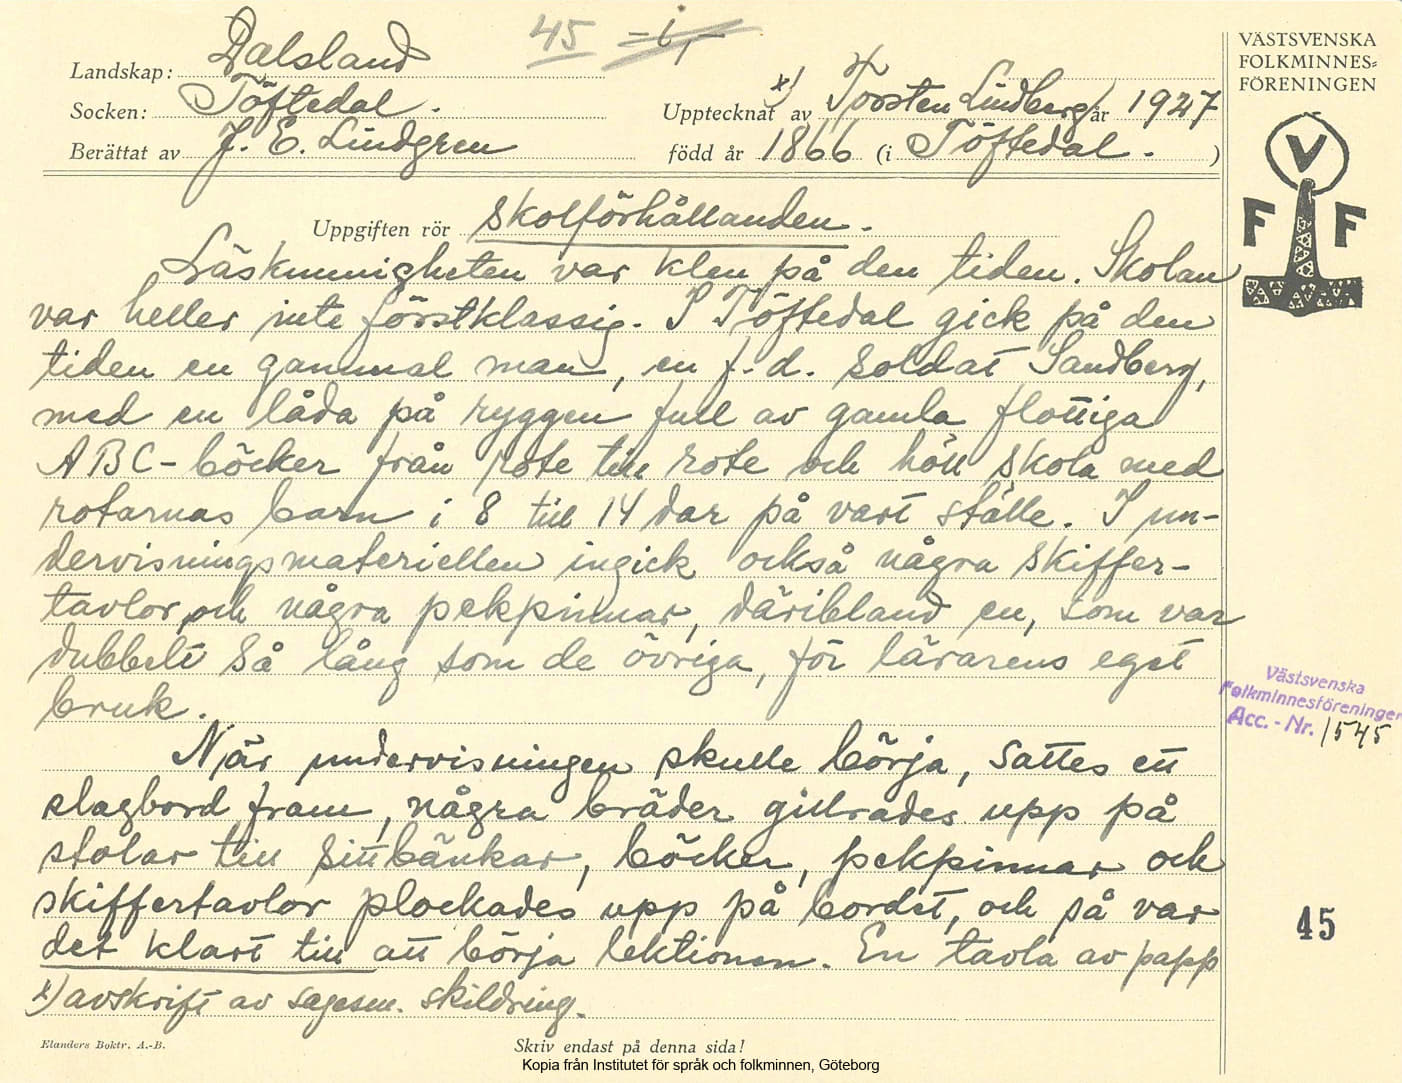 45 -i,-
VÄSTSVENSKA
FOLKMINNES=
FÖRENINGEN
Landskap: Dalsland
Socken: Töftedal. Upptecknat av x) Torsten Lindberg år 1927
Berättat av J. E. Lindgren född år 1866 (i Töftedal.)
V
F F
Uppgiften rör skolförhållanden.
Läskunnigheten var klen på den tiden. Skolan
var heller inte förstklassig. I Töftedal gick på den
tiden en gammal man, en f. d. soldat Sandberg,
med en låda på ryggen full av gamla flottiga
ABC-böcker från rote till rote och höll skola med
rotarnas barn i 8 till 14 dar på vart ställe. I un-
dervisningsmateriellen ingick också några skiffer-
tavlor, och några pekpinnar, däribland en, som var
dubbelt så lång som de övriga, för lärarens eget
bruk.
Västsvenska
Folkminnesföreningen
Acc. - Nr. 1545
När undervisningen skulle börja, sattes ett
slagbord fram, några bräder gillrades upp på
stolar till sittbänkar, böcker, pekpinnar och
skiffertavlor plockades upp på bordet, och så var
det klart till att börja lektionen. En tavla av papp
45
x) avskrift av sagesm. skildring.
Elanders Boktr. A.-B. Skriv endast på denna sida!
Kopia från Institutet för språk och folkminnen, Göteborg